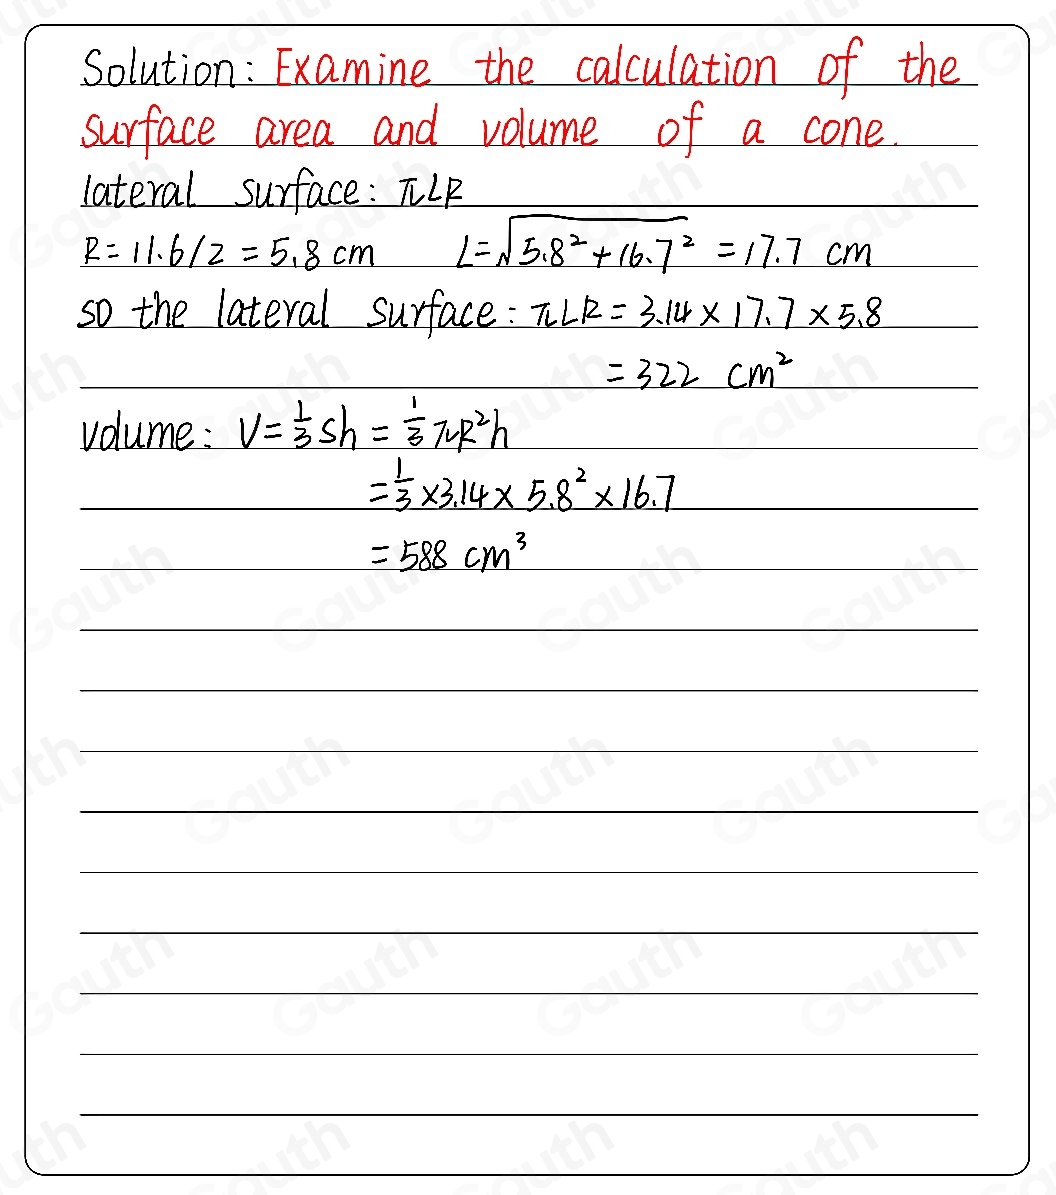 Solution: Examine the calculation of the
surface area and volume of a cone.
lateral surface: πLR
R=11.6/2=5.8 cm L=√5.8²+16.7² =17.7 cm
so the lateral surface: πLR=3.14×17.7×5.8
=322 cm²
volume: V=1/3Sh=1/3πR²h
=1/3×3.14×5.8²×16.7
=588 cm³